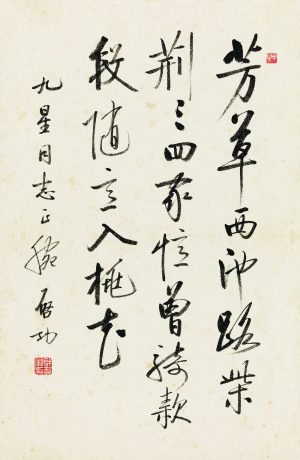 芳草西池路柴
荆三四家忆曾骑款
段随意入桃花
九星同志正腕 启功